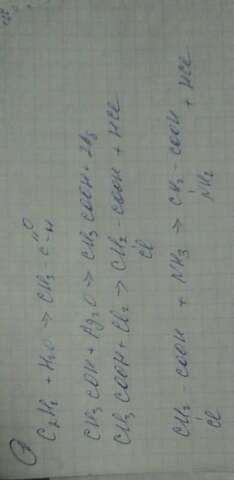 ②
C₂H₂ + H₂O → CH₃-C=O-H
CH₃COH + Ag₂O → CH₃COOH + 2Ag
CH₃COOH + Cl₂ → CH₂-COOH + HCl
Cl
CH₂-COOH + NH₃ → CH₂-COOH + HCl
Cl NH₂